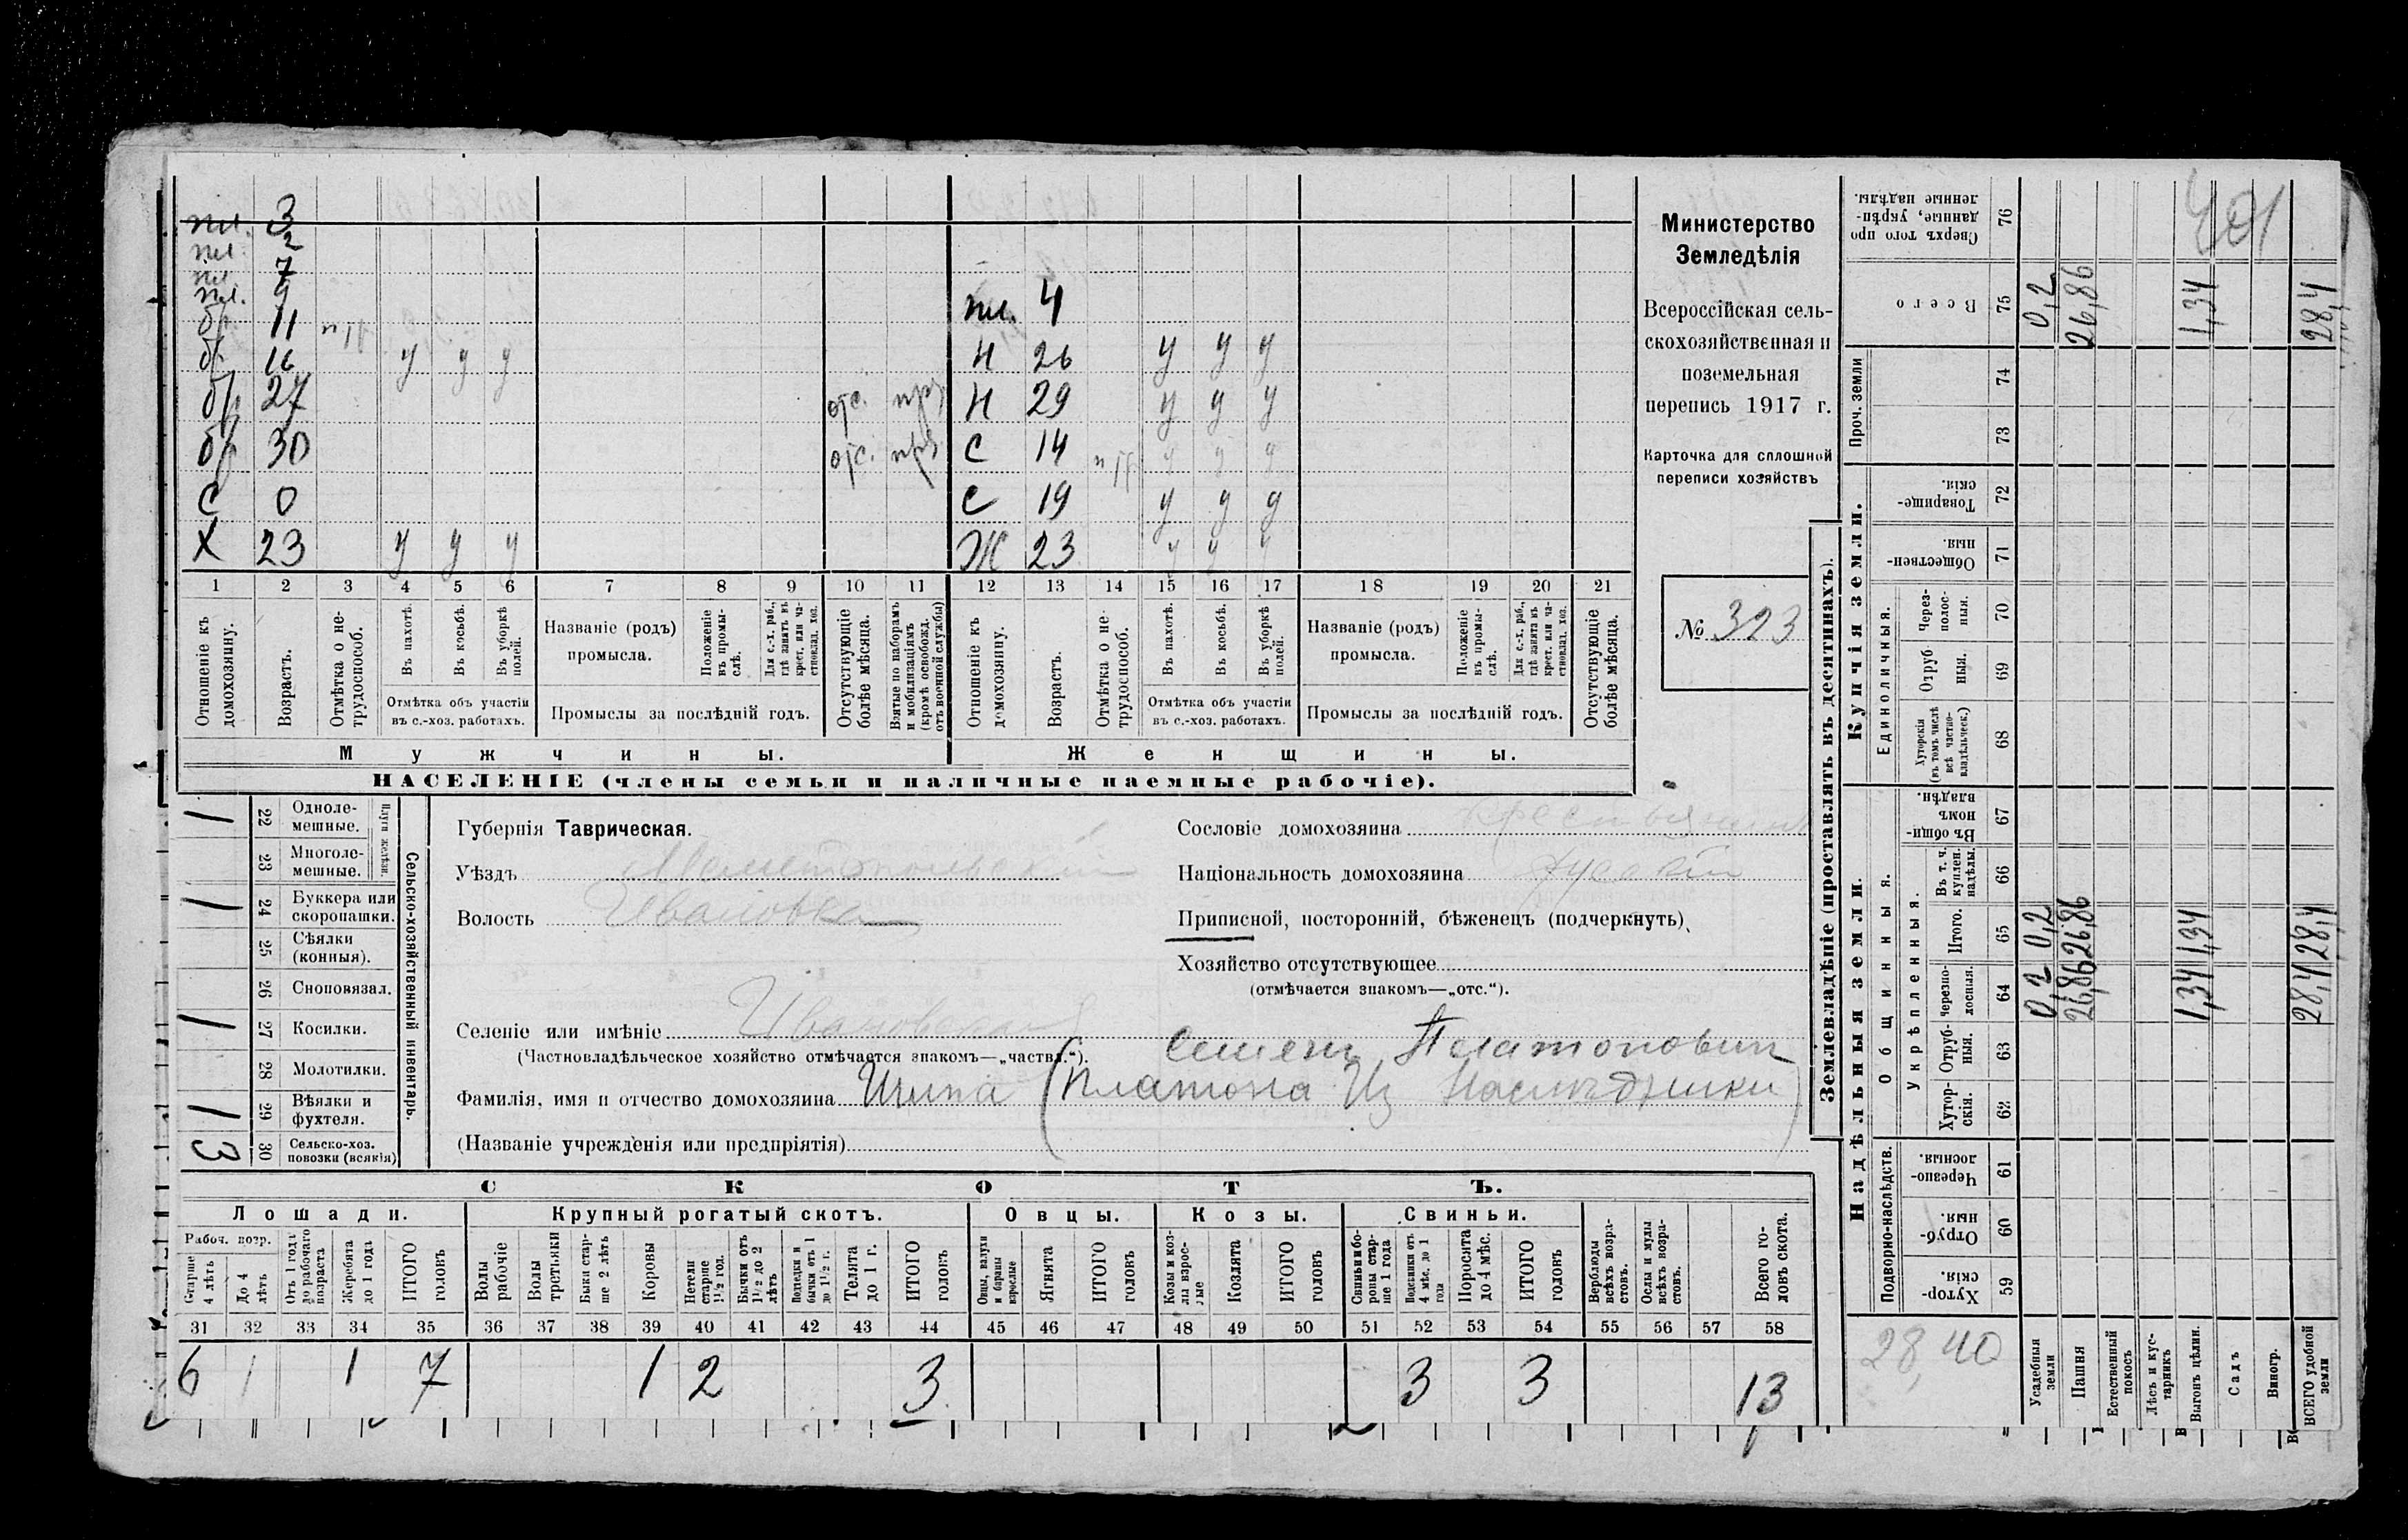 пл. 3
пл. 2
пл. 7
пл. 9
бр. 11 п/р
бр. 16 у у у
бр 27 отс. прз
бр 30 отс. прз
С 0
Х 23 у у у
пл. 4
Н 26 у у у
Н 29 у у у
С 14 п/р у у у
С 19 у у у
Ж 23 у у у
1 2 3 4 5 6 7 8 9 10 11 12 13 14 15 16 17 18 19 20 21
Отношеніе къ домохозяину.
Возрастъ.
Отмѣтка о не-трудоспособ.
Въ пахотѣ.
Въ косьбѣ.
Въ уборкѣ полей.
Отмѣтка объ участіи въ с.-хоз. работахъ.
Названіе (родъ) промысла.
Положеніе въ промы-слѣ.
Для с.-х. раб., гдѣ занятъ въ крест. или ча-стновлад. хоз.
Промыслы за послѣдній годъ.
Отсутствующіе болѣе мѣсяца.
Взятые по наборамъ и мобилизаціямъ (кромѣ освобожд. отъ военной службы)
Отношеніе къ домохозяину.
Возрастъ.
Отмѣтка о не-трудоспособ.
Въ пахотѣ.
Въ косьбѣ.
Въ уборкѣ полей.
Отмѣтка объ участіи въ с.-хоз. работахъ.
Названіе (родъ) промысла.
Положеніе въ промы-слѣ.
Для с.-х. раб., гдѣ занята въ крест. или ча-стновлад. хоз.
Промыслы за послѣдній годъ.
Отсутствующіе болѣе мѣсяца.
Мужчины.
Женщины.
НАСЕЛЕНІЕ (члены семьи и наличные наемные рабочіе).
Министерство
Земледѣлія
Всероссійская сель-
скохозяйственная и
поземельная
перепись 1917 г.
Карточка для сплошной
переписи хозяйствъ
№ 323
1 22 Одноле-мешные.
23 Многоле-мешные.
Плуги желѣзн.
1 24 Буккера или скоропашки.
25 Сѣялки (конныя).
26 Сноповязал.
1 27 Косилки.
28 Молотилки.
1 29 Вѣялки и фухтеля.
3 30 Сельско-хоз. повозки (всякія)
Сельско-хозяйственный инвентарь.
Губернія Таврическая.
Уѣздъ Мелитопольскій
Волость Ивановка
Селеніе или имѣніе Ивановская
(Частновладѣльческое хозяйство отмѣчается знакомъ—„частвл.“).
Семенъ Платоновичъ
Фамилія, имя и отчество домохозяина (Платона Из Наслѣдники)
(Названіе учрежденія или предпріятія)
Сословіе домохозяина крестьянинъ
Національность домохозяина русскій
Приписной, посторонній, бѣженецъ (подчеркнуть)
Хозяйство отсутствующее
(отмѣчается знакомъ—„отс.“).
СКОТЪ.
Лошади.
Крупный рогатый скотъ.
Овцы.
Козы.
Свиньи.
Рабоч. возр.
Старше 4 лѣтъ
До 4 лѣтъ
Отъ 1 года до рабочаго возраста
Жеребята до 1 года
ИТОГО головъ
Волы рабочіе
Волы третьяки
Быки стар-ше 2 лѣтъ
Коровы
Нетели старше 1½ год.
Бычки отъ 1½ до 2 лѣтъ
Подтелки и бычки отъ 1 до 1½ г.
Телята до 1 г.
ИТОГО головъ
Овцы, валухи и бараны взрослые
Ягнята
ИТОГО головъ
Козы и коз-лы взрос-лые
Козлята
ИТОГО головъ
Свиньи и бо-ровы стар-ше 1 года
Подсвинки отъ 4 мѣс. до 1 года
Поросята до 4 мѣс.
ИТОГО головъ
Верблюды всѣхъ возра-стовъ.
Ослы и мулы всѣхъ возра-стовъ.
Всего го-ловъ скота.
31 32 33 34 35 36 37 38 39 40 41 42 43 44 45 46 47 48 49 50 51 52 53 54 55 56 57 58
6 1 1 7 1 2 3 3 3 13
Землевладѣніе (проставлять въ десятинахъ).
Надѣльныя земли.
Купчія земли.
Проч. земли
Подворно-наслѣдств.
Общинныя.
Укрѣпленныя.
Единоличныя.
Сверхъ того про-данные, укрѣп-ленные надѣлы. 76
Всего 75
74
73
Товарище-скія. 72
Обществен-ныя. 71
Через-полос-ныя. 70
Отруб-ныя. 69
Хуторскія (въ томъ числѣ всѣ частно-владѣльческ.) 68
Въ общин-номъ владѣн. 67
Въ т. ч. куплен. надѣлы. 66
Итого. 65
Черезпо-лосныя. 64
Отруб-ныя. 63
Хутор-скія. 62
Черезпо-лосныя. 61
Отруб-ныя. 60
Хутор-скія. 59
28,40
Усадебныя земли 0,2 0,2 0,2
Пашня 26,86 26,86 26,86
Естественный покосъ
Лѣсъ и кус-тарникъ
Выгонъ цѣлин. 1,34 1,34 1,34
Садъ
Виногр.
ВСЕГО удобной земли 28,4 28,4 28,4